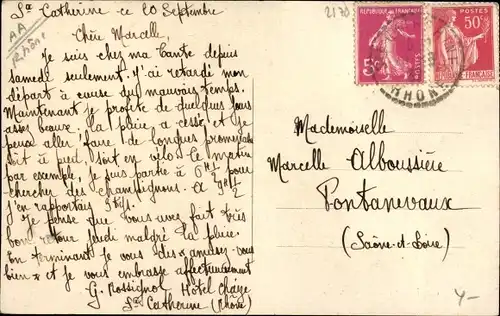 Ste Catherine ce 20 Septembre
Chère Marcelle,
Je suis chez ma tante depuis
samedi seulement. J'ai retardé mon
départ à cause du mauvais temps.
Maintenant je profite de quelques jours
assez beaux, la pluie a cessé et je
peux aller faire de longues promenades
soit à pied, soit en vélo. Ce matin
par exemple, je suis partie à 6h ½ pour
chercher des champignons. A 9h ½
j'en rapportais
Je pense que vous avez fait très
bon retour jeudi malgré la pluie.
En terminant je vous dis "amusez-vous
bien" et je vous embrasse affectueusement
G. Rossignol Hôtel
Ste Catherine (Rhône)
AA
RHONE
2170
5c
POSTES
50c
RHONE
Mademoiselle
Marcelle Alboussière
Pontanevaux
(Saône-et-Loire)
4-